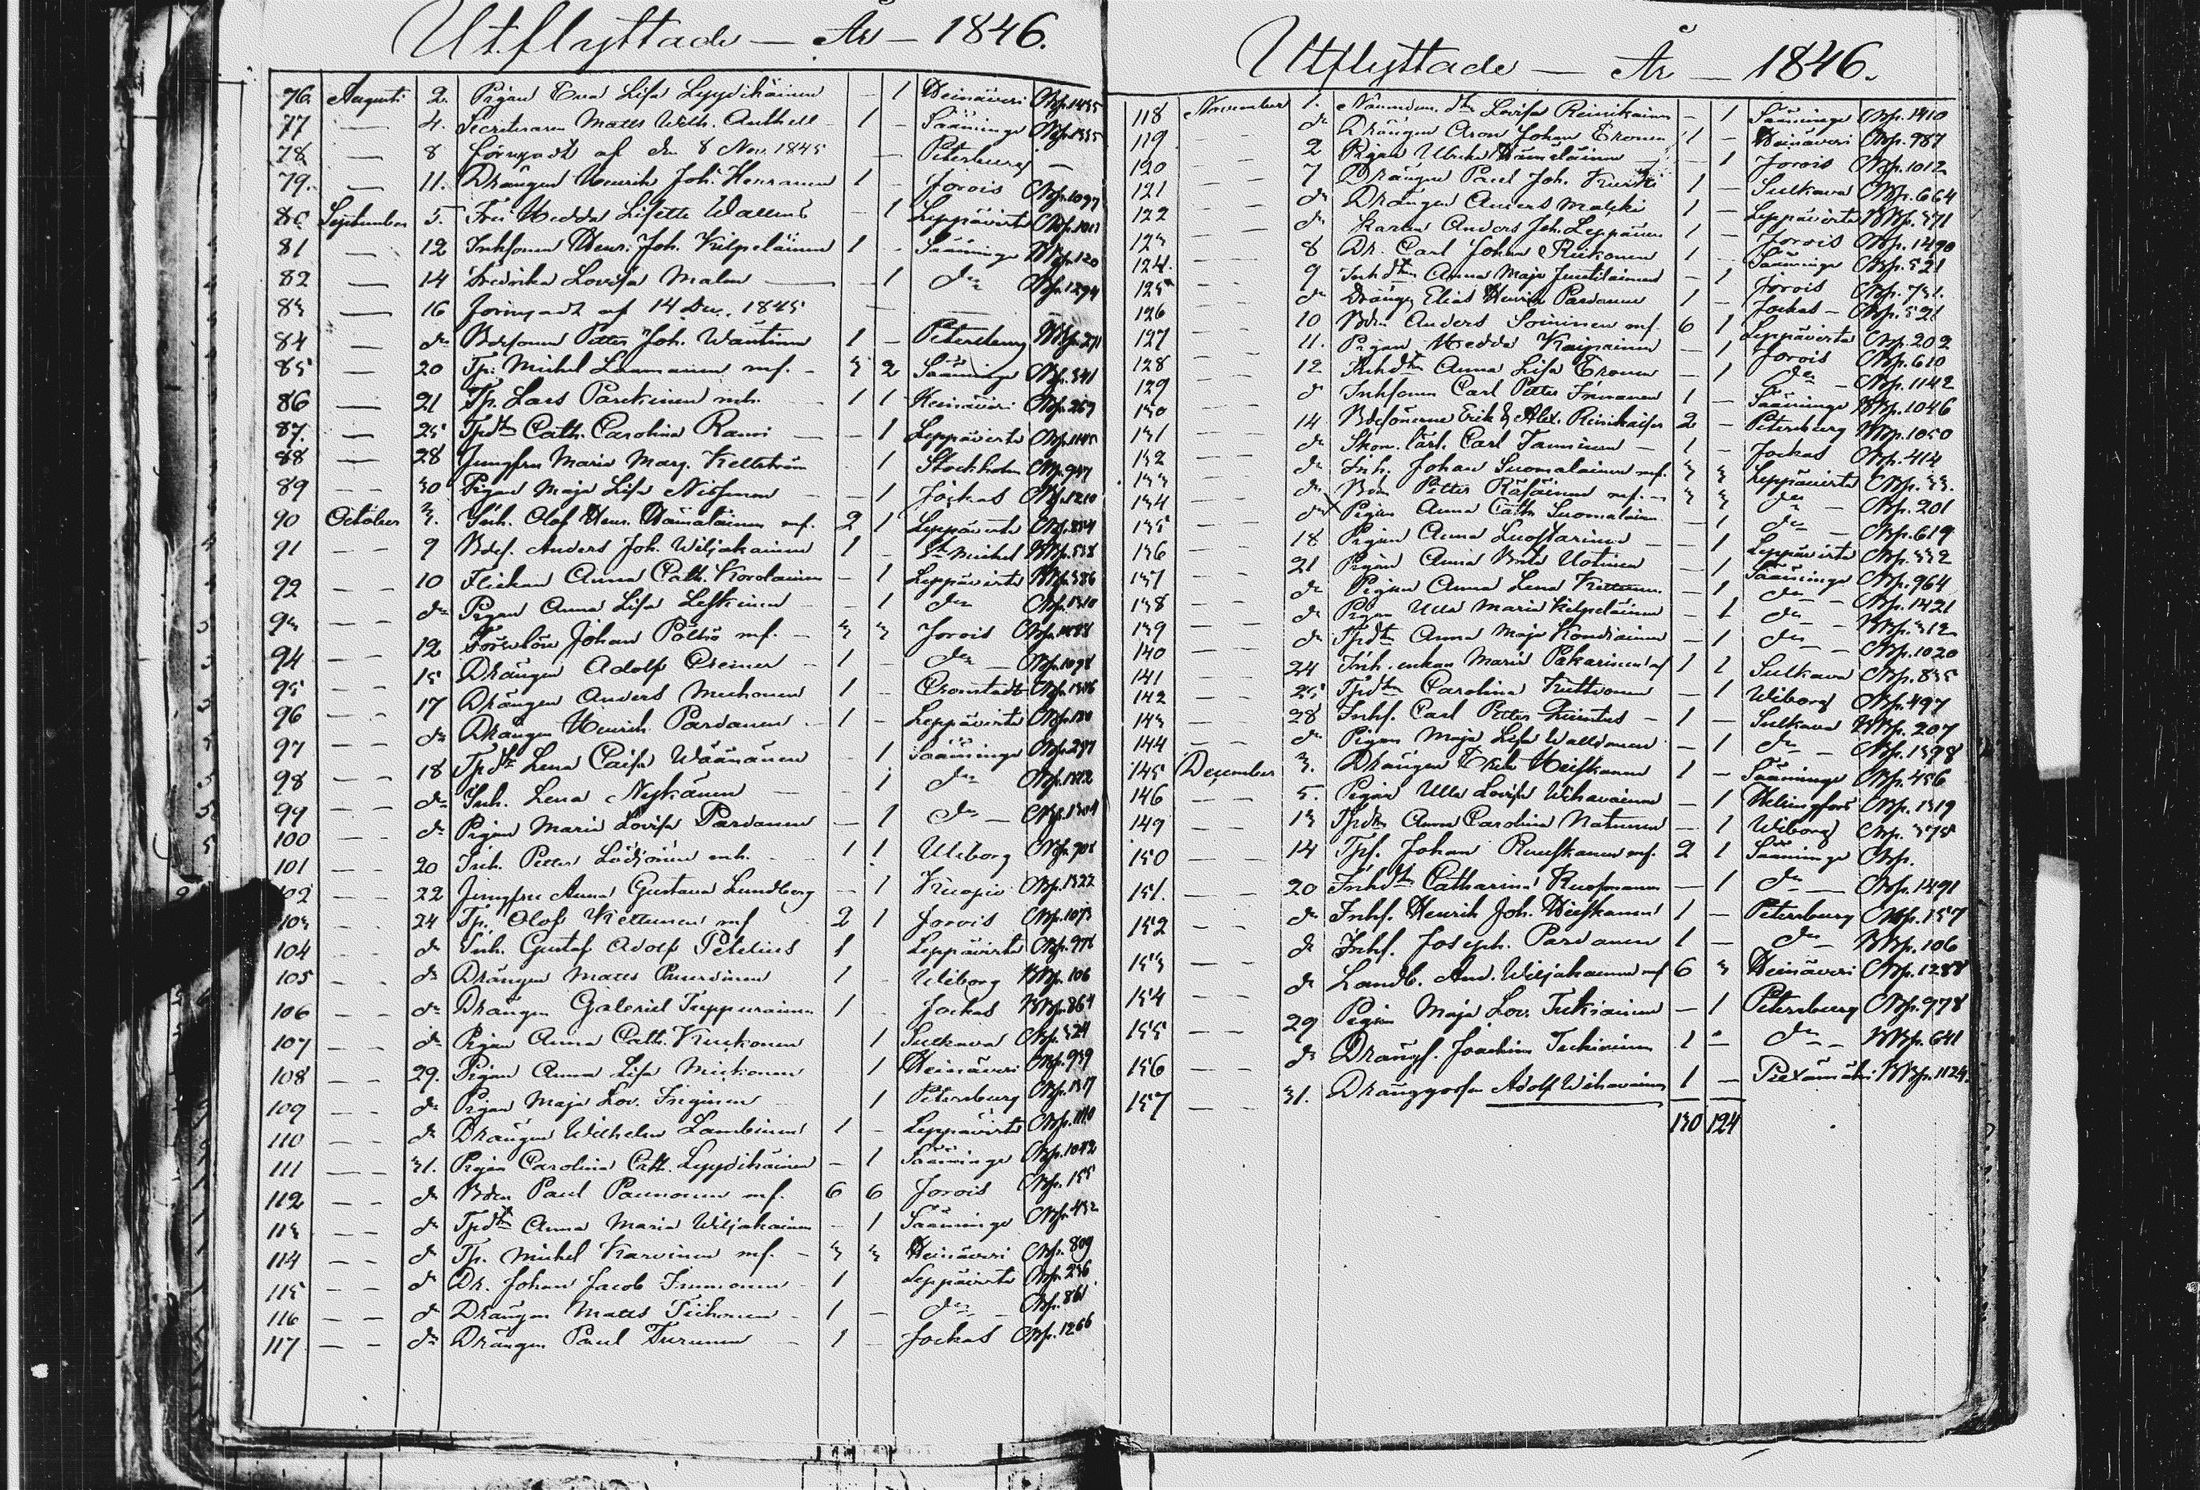 Utflyttade — År — 1846.
76. Augusti 2. Pigan Eva Lisa Lyydikäinen — 1 Heinäveri
77 — 4. Secreteraren Matts Wilh. Anthell 1 — Sääminge
78 — 8 förnyadt af den 8 Nov. 1845 — Petersburg —
79. — 11. Drängen Henrik Joh. Henranen 1 — Jorois Nbp. 1097
80 September 5. Hedda Lisette — 1 Leppävirta
81 — 12 Inhsonen Henr. Joh. Kilpeläinen 1 — Sääminge Nbp. 120
82 — 14 Fredrika Lovisa Malm — 1 do Nbp. 1294
83 — 16 förnyadt af 14 Dec. 1845
84 — do Bdesonen Petter Joh. Wäntinen 1 — Petersburg Nbp. 271
85 — 20 Tp. Michel Laamanen mf. 3 2 Sääminge Nbp. 341
86 — 21 Tp. Lars Parkinen mh. 1 1 Heinäveri Nbp. 269
87. — 25 Tpdtr Cath. Carolina — 1 Leppävirta Nbp. 1145
88 — 28 Jungfru Maria Marg. 1 Stockholm Nbp. 947
89 — 30 Pigan Maja Lisa Nissinen — 1 Jockas Nbp. 1210
90 October 3. Inh. Olof Henr. Hämäläinen mf. 2 1 Leppävirta Nbp. 884
91 — 9 Bdes. Anders Joh. Wiljakainen 1 — St Michel Nbp. 538
92 — 10 Flickan Anna Cath. Korolainen — 1 Leppävirta Nbp. 386
93 — do Pigan Anna Lisa Leskinen — 1 do Nbp. 1310
94 — 12 Johan mf. 3 3 Jorois
95 — 15 Drängen Adolf 1 — do Nbp. 1098
96 — 17 Drängen Anders Muhonen 1 — Cronstadt
97 — do Drängen Henrik Pardanen 1 — Leppävirta
98 — 18 Tpdtr Lena Caisa Wäänänen — 1 Sääminge Nbp. 297
99 — do Inh. Lena Nykänen — 1 do
100 do Pigan Maria Lovisa Pardanen — 1 do Nbp. 1304
101 — 20 Inh. Petter mh. 1 1 Uleborg
102 — 22 Jungfru Anna Gustava Lundberg — 1 Kuopio Nbp. 1322
103 — 24 Tp. Olof Kettunen mf 2 1 Jorois Nbp. 1073
104 — do Inh. Gustaf Adolf Petelius 1 Leppävirta Nbp. 978
105 — do Drängen Matts 1 — Wiborg Nbp. 106
106 — do Drängen Gabriel Tuppurainen 1 — Jockas Nbp. 864
107 — do Pigan Anna Cath. Kuikonen 1 Sulkava Nbp. 324
108 — 29. Pigan Anna Lisa Miskonen 1 Heinäveri Nbp. 939
109 — do Pigan Maja Lov. Inginen 1 Petersburg Nbp. 1317
110 — do Drängen Wilhelm Lambinen 1 — Leppävirta
111 — 31. Pigan Carolina Cath. Lyydikäinen — 1 Sääminge Nbp. 1042
112 — do Bden Paul Paunonen mf. 6 6 Jorois Nbp. 155
113 — do Tpdtr Anna Maria Wiljakainen — 1 Sääminge Nbp. 432
114 — do Tp. Michel Karvinen mf. 3 3 Heinäveri Nbp. 809
115 — do Dr. Johan Jacob Immonen 1 Leppävirta Nbp. 236
116 — do Drängen Matts Tiihonen 1 — do Nbp. 861
117 — do Drängen Paul Turunen 1 — Jockas Nbp. 1266
Utflyttade — År — 1846.
118 November 1. Nämndem. dtr Lovisa Reinikainen — 1 Sääminge Nbp. 1410
119 — do Drängen Aron Johan Tronen 1 — Heinäveri Nbp. 987
120 — 2 Pigan Ulrika Hämäläinen — 1 Jorois Nbp. 1012
121 — 7 Drängen Paul Joh. 1 — Sulkava Nbp. 664
122 — do Drängen Anders Malkki 1 — Leppävirta Nbp. 371
123 — do Karen Anders Joh. Leppänen 1 — Jorois Nbp. 1490
124. — 8 Dr. Carl Johan Riikonen 1 — Sääminge Nbp. 521
125 — 9 Inhdtr Anna Maja Juutilainen — 1 Jorois Nbp. 731.
126 do Dräng. Elias Henrik Pardanen 1 — Jockas — Nbp. 521
127 — 10 Bden Anders Soininen mf 6 1 Leppävirta Nbp. 202
128 — 11. Pigan Hedda Kaipainen — 1 Jorois Nbp. 610
129 — 12 Inhdtr Anna Lisa Tronen — 1 do — Nbp. 1142
130 — do Inhsonen Carl Petter 1 — Sääminge Nbp. 1046
131 — 14 Bdesönerne Erik & Alex. 2 — Petersburg Nbp. 1050
132 — do Skom. lärl. Carl Tanninen — 1 — Jockas Nbp. 414
133 — do Inh. Johan Suomalainen mf. 3 3 Leppävirta Nbp. 33.
134 — do Bden Petter Räsäinen mf. 3 3 do — Nbp. 201
135 — do Pigan Anna Cath. Suomalainen — 1 do — Nbp. 619
136 — 18 Pigan Anna Luostarinen — 1 Leppävirta Nbp. 332
137 — 21 Pigan Anna Brita Uotinen — 1 Sääminge Nbp. 964
138 — do Pigan Anna Lena Kettunen — 1 do — Nbp. 1421
139 — do Pigan Ulla Maria Kilpeläinen — 1 do — Nbp. 312
140 — do Tpdtr Anna Maja Kondiainen — 1 do — Nbp. 1020
141 — 24 Inh. enkan Maria Pakarinen mf 1 1 Sulkava Nbp. 835
142 — 25 Tpdtr Carolina — 1 Wiborg Nbp. 497
143 — 28 Inhs. Carl Petter 1 — Sulkava Nbp. 207
144 — do Pigan Maja Lisa — 1 do — Nbp. 1398
145 December 3. Drängen Erik Heiskanen 1 — Sääminge Nbp. 456
146 — 5. Pigan Ulla Lovisa Wihavainen — 1 Helsingfors Nbp. 1319
149 — 13 Tpdtr Anna Carolina Natunen — 1 Wiborg Nbp. 378
150 — 14 Tps. Johan Ruuskanen mf. 2 1 Sääminge Nbp.
151. — 20 Inhdtr Catharina — 1 do — Nbp. 1491
152 — do Inhs. Henrik Joh. Heiskanen 1 — Petersburg Nbp. 157
153 — do Inhs. Joseph Pardanen 1 — do — Nbp. 106
154 — do Landb. And. Wiljakainen mf 6 3 Heinäveri Nbp. 1288
155 — 29 Pigan Maja Lov. Tukiainen — 1 Petersburg Nbp. 978
156 — do Drängs. Joachim Tukiainen 1 — do — Nbp. 641
157 — 31. Dränggossen Adolf Wihavainen 1 — Piexämäki Nbp. 1124.
130 124